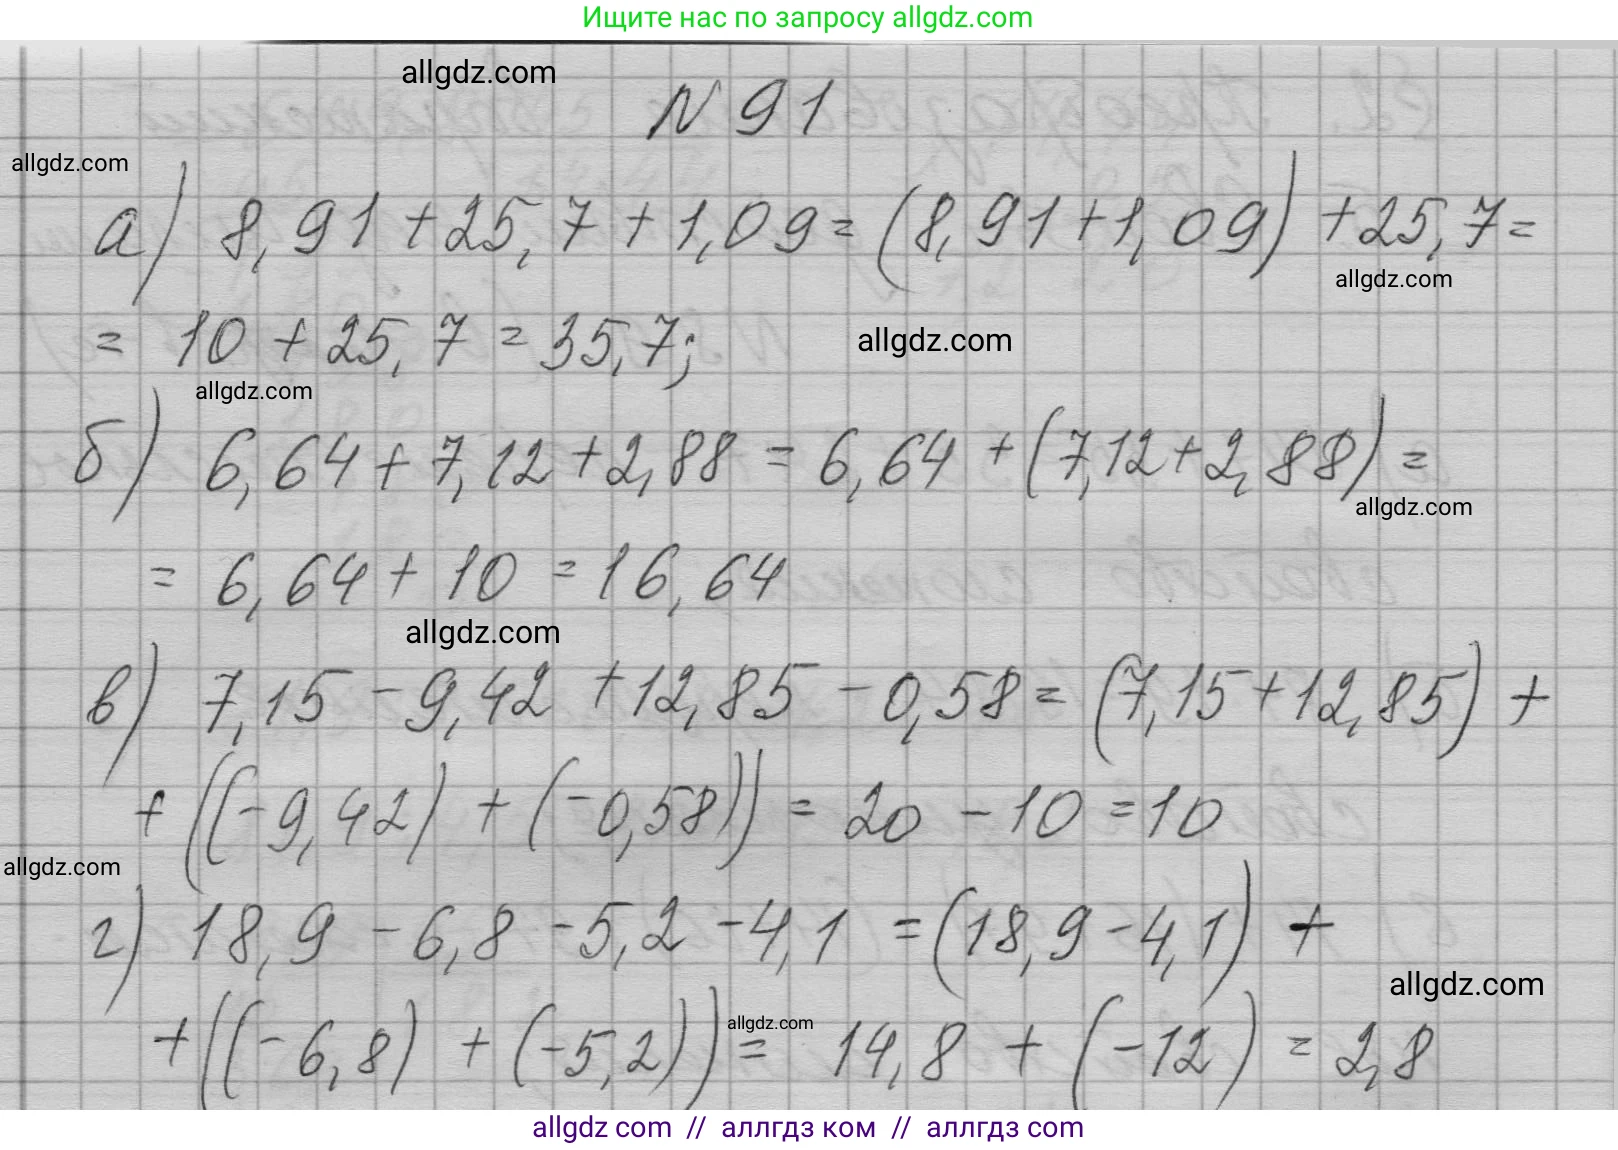 Ищите нас по запросу allgdz.com
allgdz.com
N 91
allgdz.com
а) 8,91+25,7+1,09=(8,91+1,09)+25,7=
allgdz.com
= 10+25,7=35,7;
allgdz.com
allgdz.com
б) 6,64+7,12+2,88=6,64+(7,12+2,88)=
allgdz.com
= 6,64+10=16,64
allgdz.com
в) 7,15-9,42+12,85-0,58=(7,15+12,85)+
+((-9,42)+(-0,58))=20-10=10
allgdz.com
г) 18,9-6,8-5,2-4,1=(18,9-4,1)+
allgdz.com
+((-6,8)+(-5,2))=14,8+(-12)=2,8
allgdz.com
allgdz com // аллгдз ком // аллгдз com